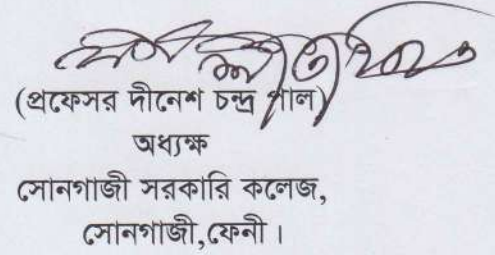 (প্রফেসর দীনেশ চন্দ্র পাল)
অধ্যক্ষ
সোনগাজী সরকারি কলেজ,
সোনগাজী,ফেনী ।